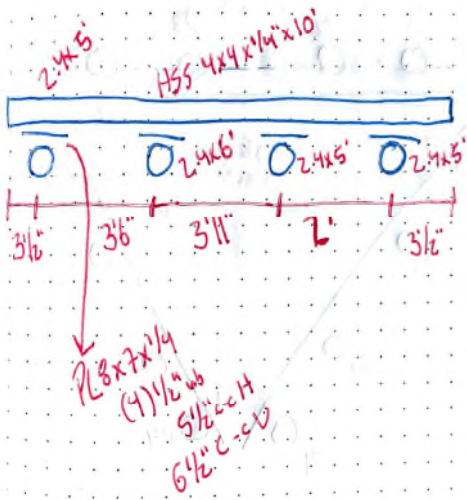 2.4x5'
HSS 4x4x1/4"x10'
2.4x6'
2.4x5'
2.4x5'
3½"
3'6"
3'11"
2'
3½"
PL 8x7x1/4
(4) ½"
5½" c-c H
6½" c-c V